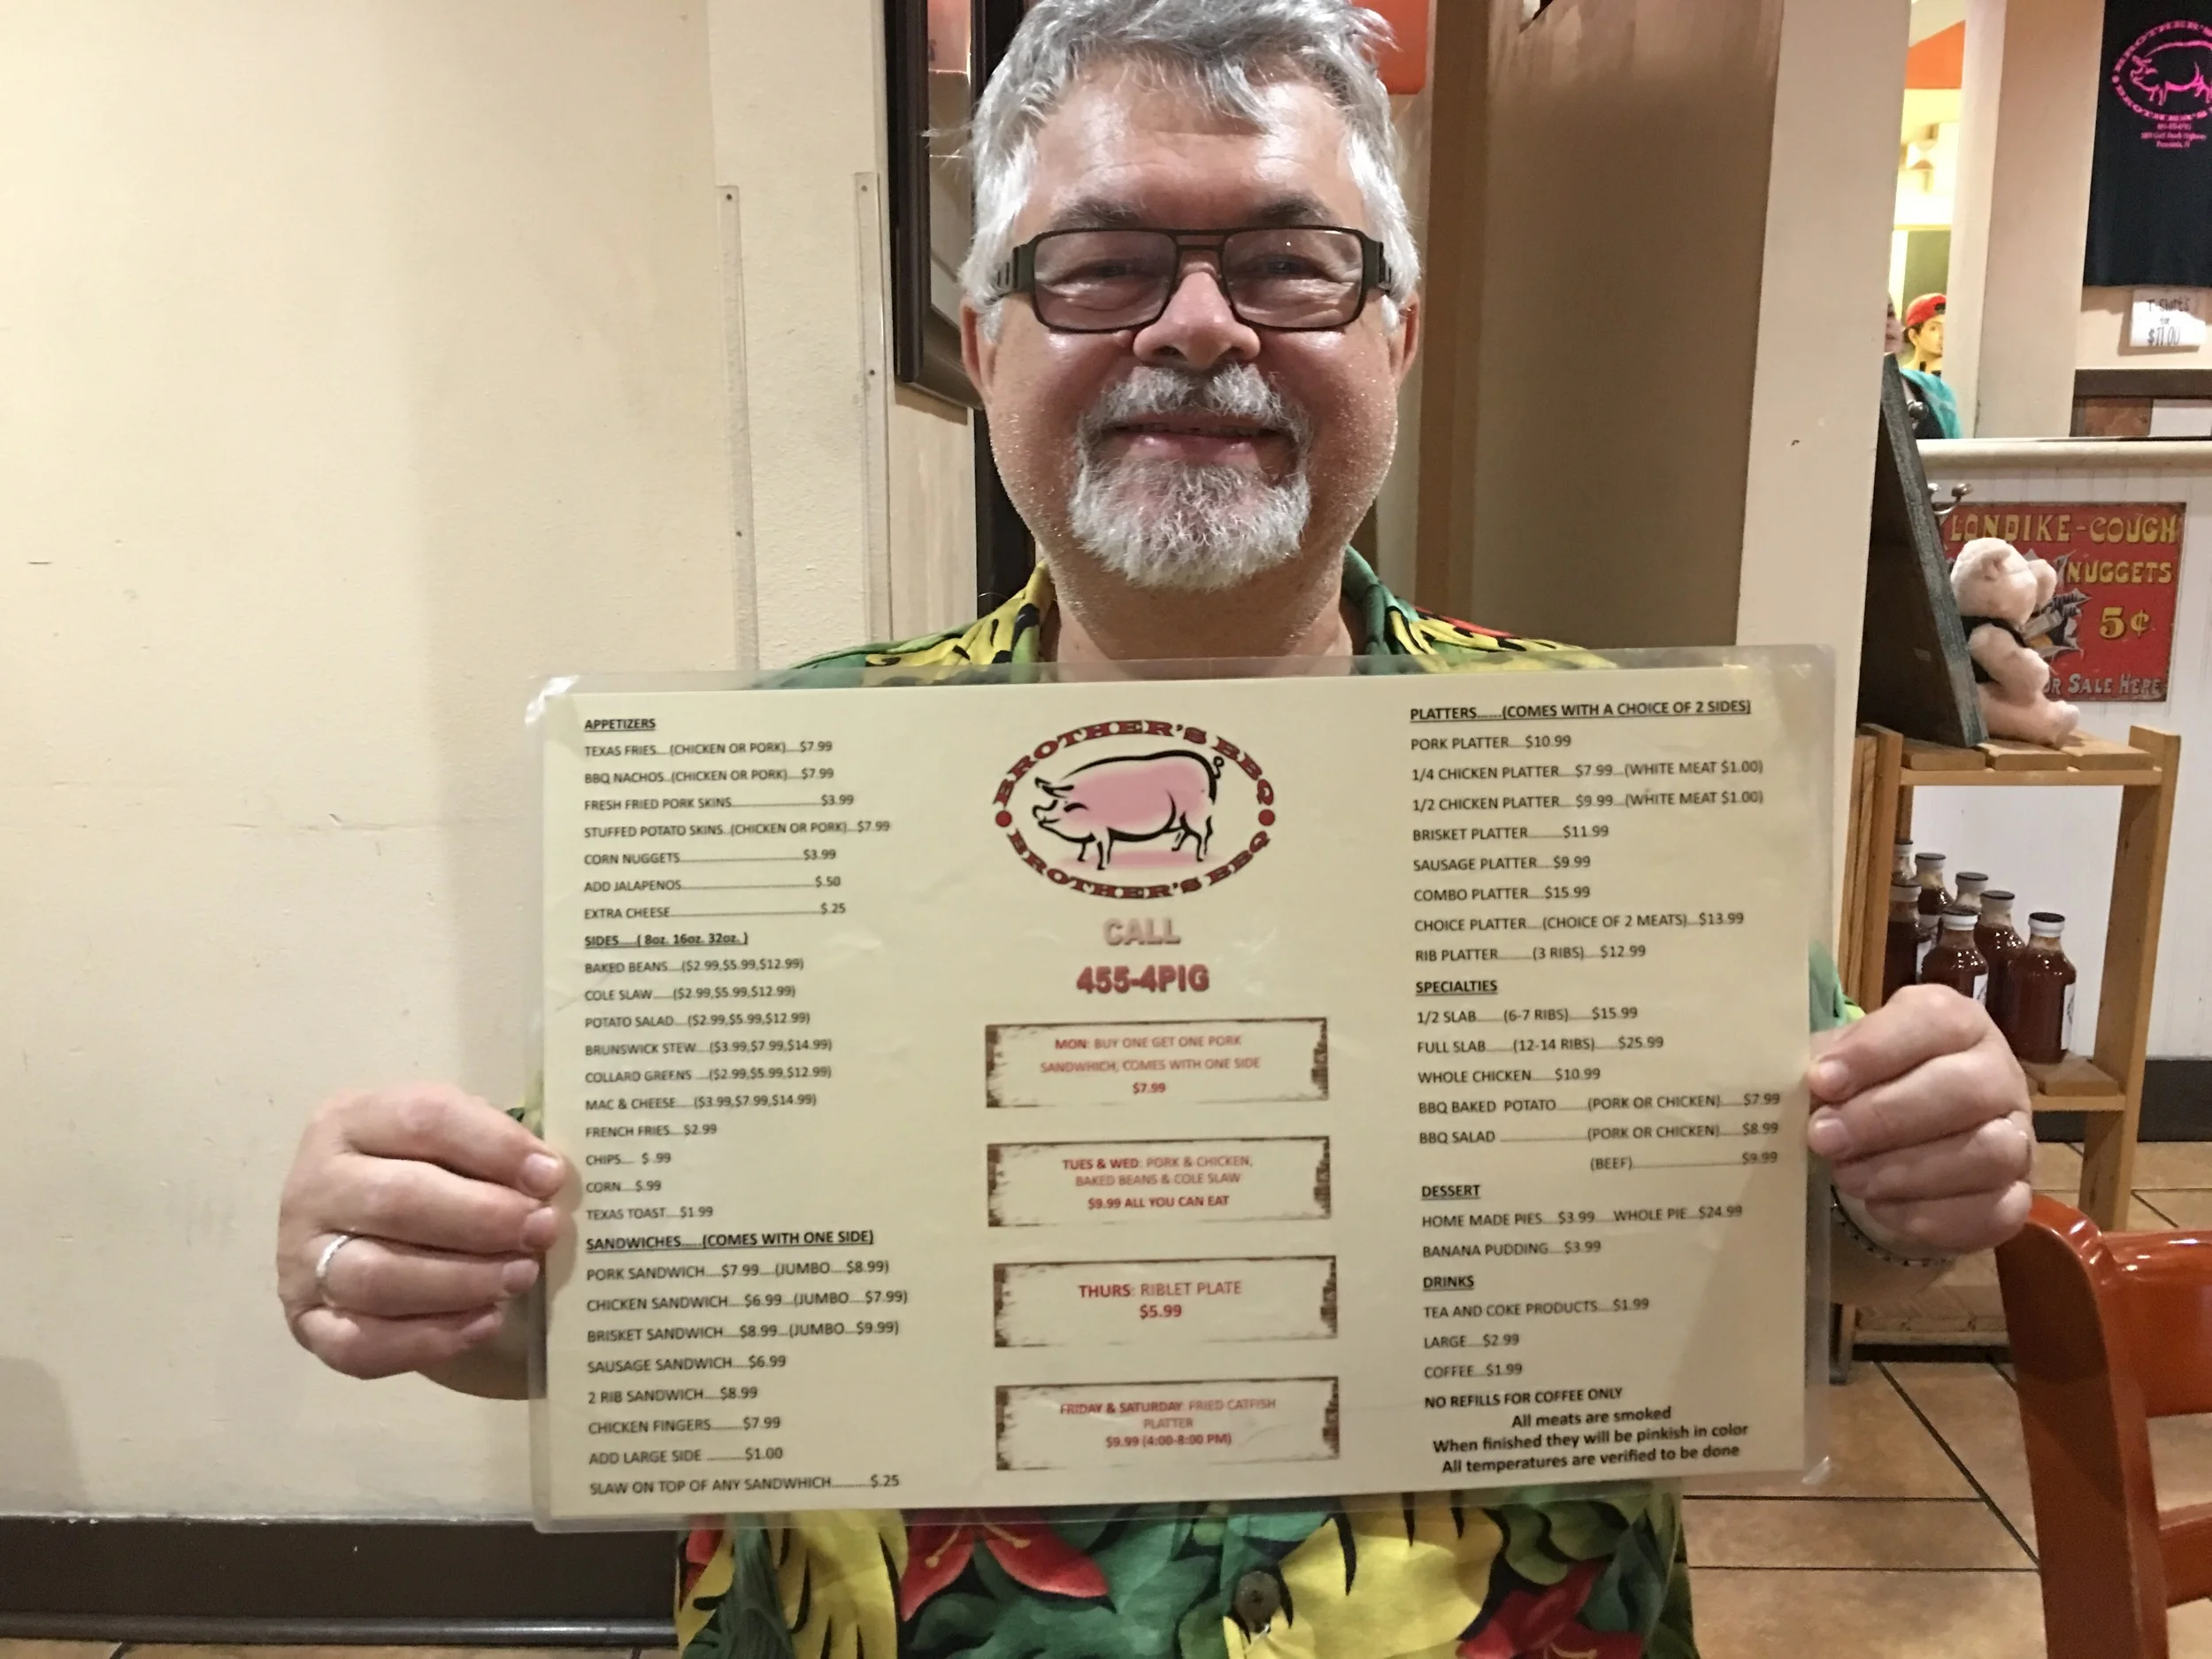 APPETIZERS
TEXAS FRIES....(CHICKEN OR PORK)....$7.99
BBQ NACHOS..(CHICKEN OR PORK)....$7.99
FRESH FRIED PORK SKINS..............................$3.99
STUFFED POTATO SKINS..(CHICKEN OR PORK)...$7.99
CORN NUGGETS..........................................$3.99
ADD JALAPENOS.............................................$.50
EXTRA CHEESE..................................................$.25
SIDES.....( 8oz. 16oz. 32oz. )
BAKED BEANS....($2.99,$5.99,$12.99)
COLE SLAW......($2.99,$5.99,$12.99)
POTATO SALAD....($2.99,$5.99,$12.99)
BRUNSWICK STEW....($3.99,$7.99,$14.99)
COLLARD GREENS ....($2.99,$5.99,$12.99)
MAC & CHEESE.....($3.99,$7.99,$14.99)
FRENCH FRIES....$2.99
CHIPS.... $ .99
CORN....$.99
TEXAS TOAST....$1.99
SANDWICHES......(COMES WITH ONE SIDE)
PORK SANDWICH.....$7.99.....(JUMBO.....$8.99)
CHICKEN SANDWICH....$6.99...(JUMBO.....$7.99)
BRISKET SANDWICH.....$8.99...(JUMBO....$9.99)
SAUSAGE SANDWICH.....$6.99
2 RIB SANDWICH.....$8.99
CHICKEN FINGERS..........$7.99
ADD LARGE SIDE ............$1.00
SLAW ON TOP OF ANY SANDWHICH............$.25
BROTHER'S BBQ
BROTHER'S BBQ
CALL
455-4PIG
MON: BUY ONE GET ONE PORK
SANDWHICH, COMES WITH ONE SIDE
$7.99
TUES & WED: PORK & CHICKEN,
BAKED BEANS & COLE SLAW
$9.99 ALL YOU CAN EAT
THURS: RIBLET PLATE
$5.99
FRIDAY & SATURDAY: FRIED CATFISH
PLATTER
$9.99 (4:00-8:00 PM)
PLATTERS.......(COMES WITH A CHOICE OF 2 SIDES)
PORK PLATTER.....$10.99
1/4 CHICKEN PLATTER.....$7.99....(WHITE MEAT $1.00)
1/2 CHICKEN PLATTER.....$9.99....(WHITE MEAT $1.00)
BRISKET PLATTER..........$11.99
SAUSAGE PLATTER.....$9.99
COMBO PLATTER.....$15.99
CHOICE PLATTER.....(CHOICE OF 2 MEATS)....$13.99
RIB PLATTER..........(3 RIBS).....$12.99
SPECIALTIES
1/2 SLAB........(6-7 RIBS).......$15.99
FULL SLAB........(12-14 RIBS)......$25.99
WHOLE CHICKEN.......$10.99
BBQ BAKED POTATO.........(PORK OR CHICKEN)......$7.99
BBQ SALAD ..........................(PORK OR CHICKEN)......$8.99
(BEEF)................................$9.99
DESSERT
HOME MADE PIES....$3.99......WHOLE PIE....$24.99
BANANA PUDDING....$3.99
DRINKS
TEA AND COKE PRODUCTS.....$1.99
LARGE.....$2.99
COFFEE....$1.99
NO REFILLS FOR COFFEE ONLY
All meats are smoked
When finished they will be pinkish in color
All temperatures are verified to be done
BROTHER'S
BROTHER'S
T-Shirts
for
$11.00
LONDIKE-COUGH
NUGGETS
5¢
OR SALE HERE